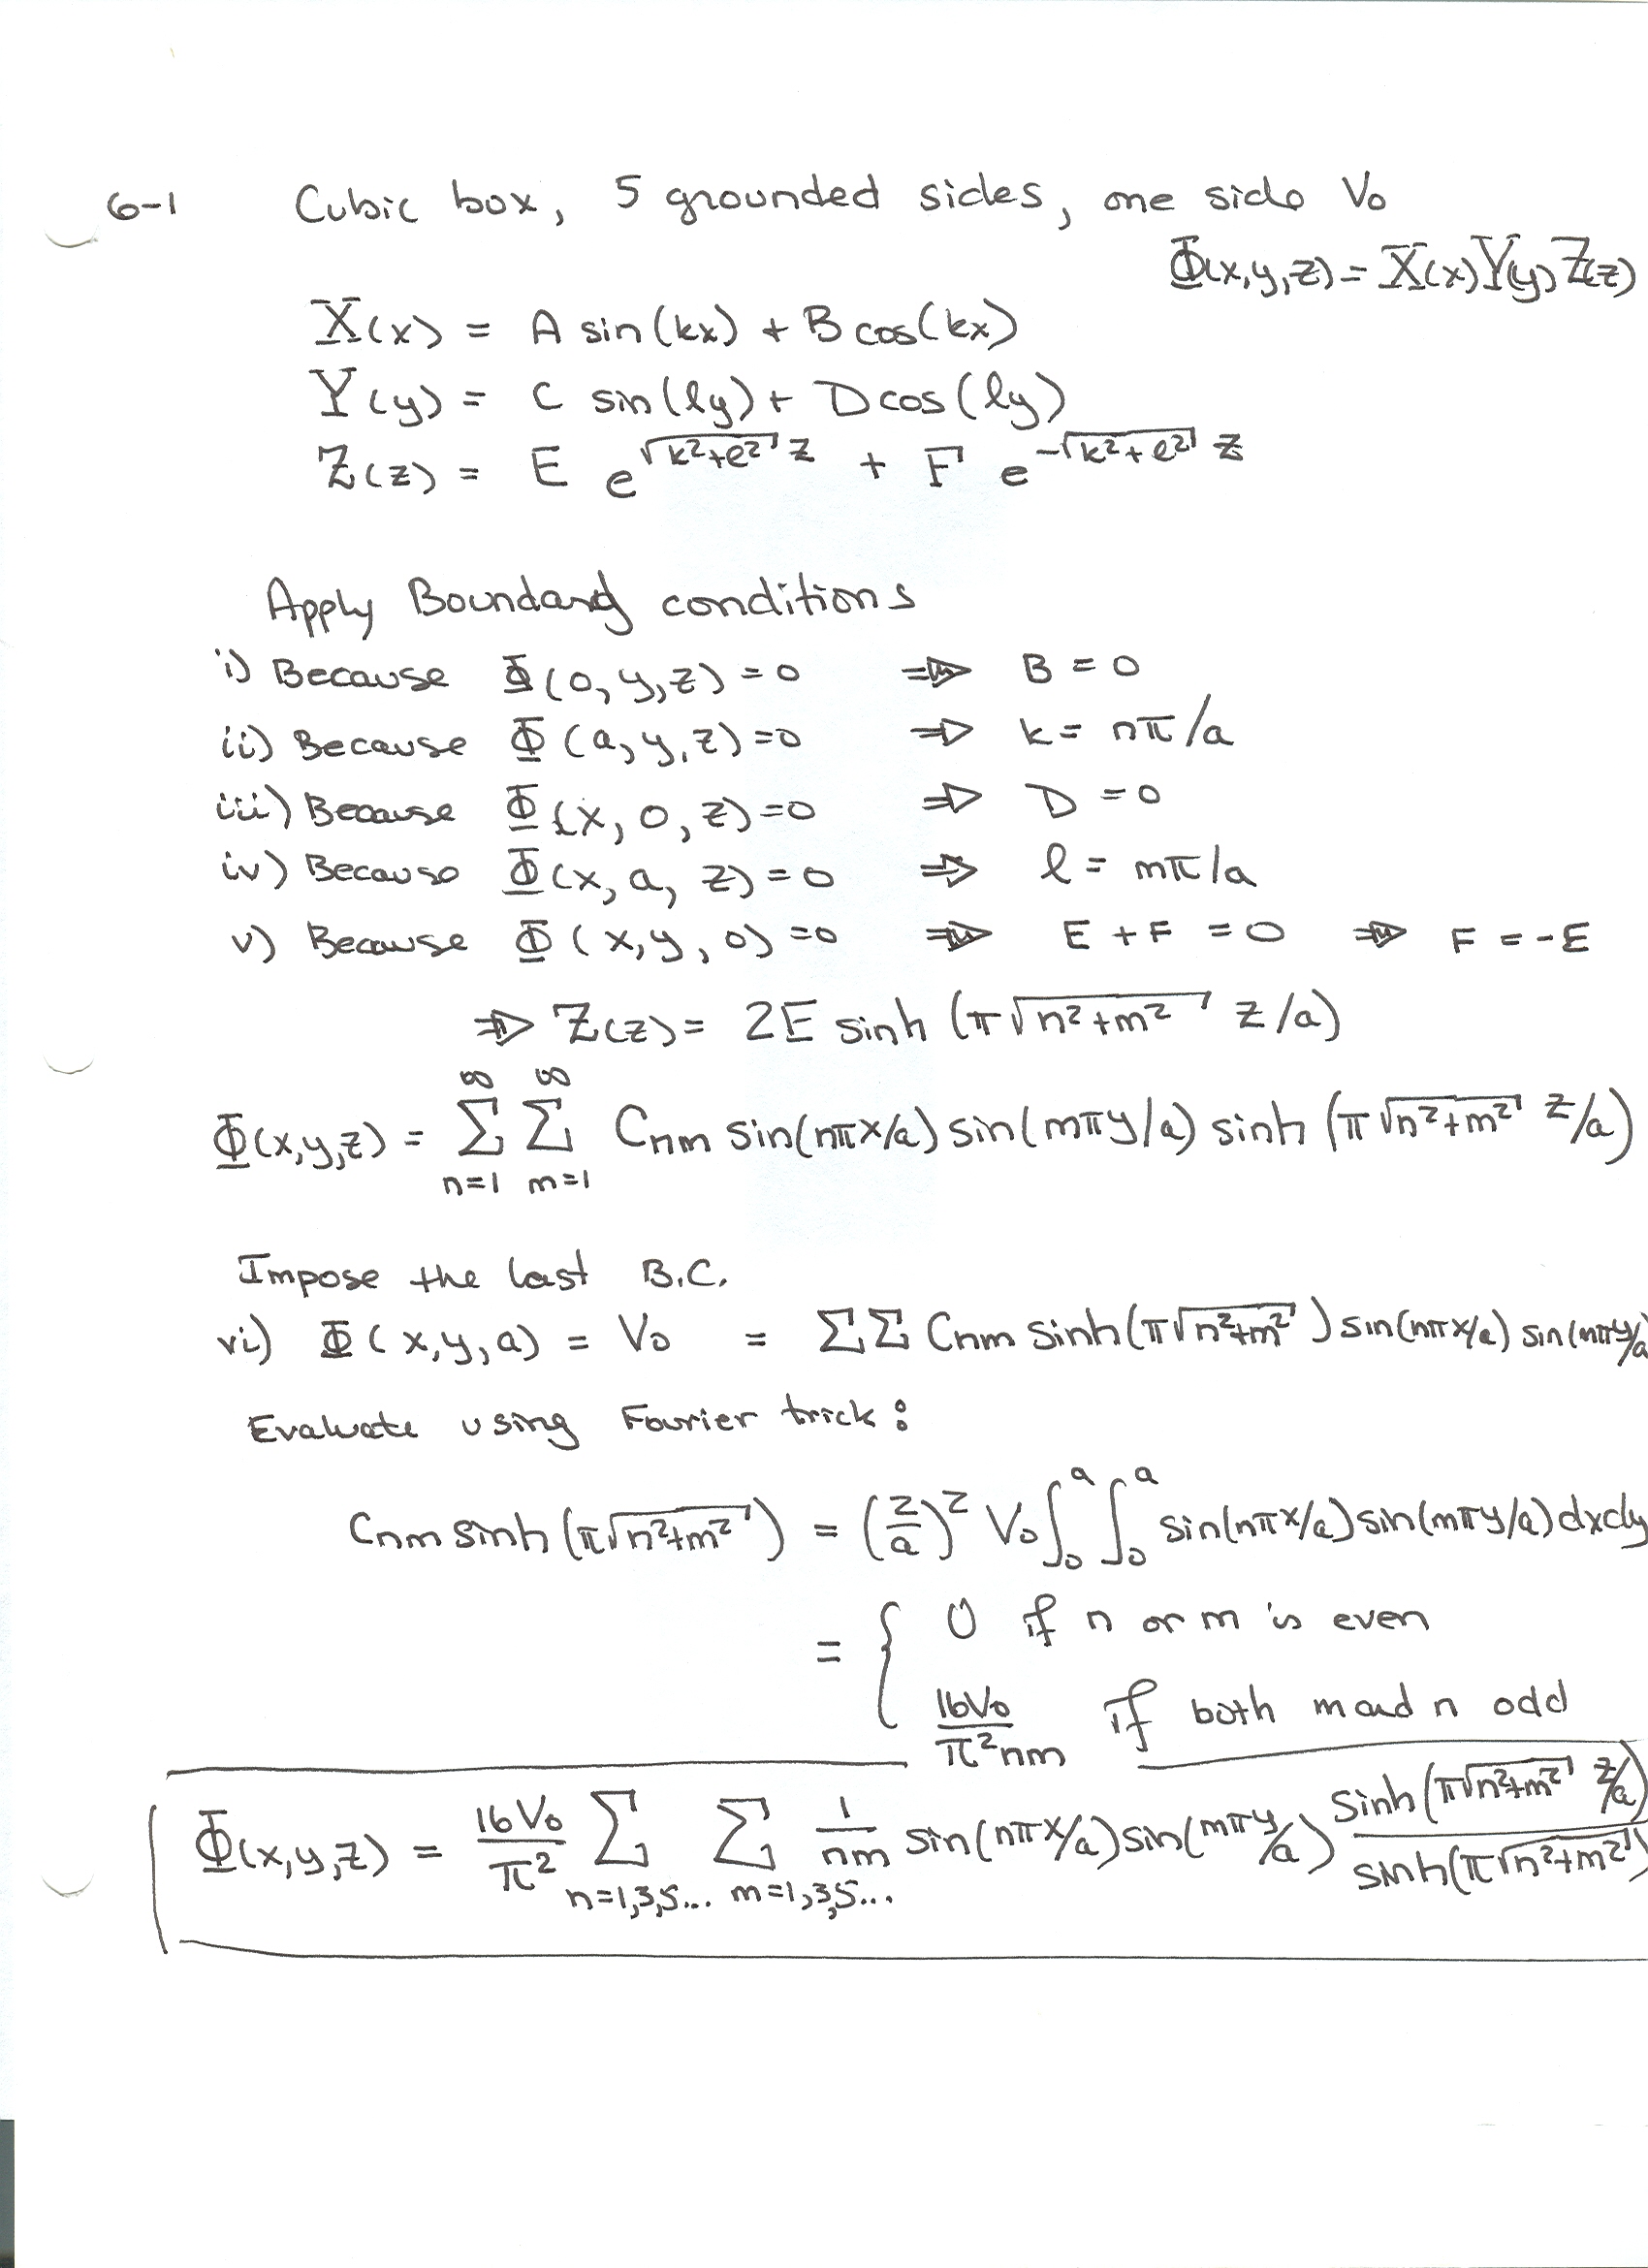 6-1 Cubic box, 5 grounded sides, one side V₀
Φ(x,y,z) = X(x)Y(y)Z(z)
X(x) = A sin(kx) + B cos(kx)
Y(y) = C sin(ly) + D cos(ly)
Z(z) = E e^{√(k²+l²) z} + F e^{-√(k²+l²) z}
Apply Boundary conditions
i) Because Φ(0,y,z)=0 ⇒ B = 0
ii) Because Φ(a,y,z)=0 ⇒ k = nπ/a
iii) Because Φ(x,0,z)=0 ⇒ D = 0
iv) Because Φ(x,a,z)=0 ⇒ l = mπ/a
v) Because Φ(x,y,0)=0 ⇒ E + F = 0 ⇒ F = -E
⇒ Z(z) = 2E sinh (π√(n²+m²) z/a)
Φ(x,y,z) = ∑_{n=1}^{∞} ∑_{m=1}^{∞} Cnm sin(nπx/a) sin(mπy/a) sinh (π√(n²+m²) z/a)
Impose the last B.C.
vi) Φ(x,y,a) = V₀ = ∑∑ Cnm sinh(π√(n²+m²)) sin(nπx/a) sin(mπy/a
Evaluate using Fourier trick:
Cnm sinh (π√(n²+m²)) = (2/a)² V₀ ∫₀^a ∫₀^a sin(nπx/a) sin(mπy/a) dxdy
= { 0 if n or m is even
16V₀/π²nm if both m and n odd
Φ(x,y,z) = 16V₀/π² ∑_{n=1,3,5...} ∑_{m=1,3,5...} 1/nm sin(nπx/a) sin(mπy/a) sinh(π√(n²+m²) z/a)/sinh(π√(n²+m²))